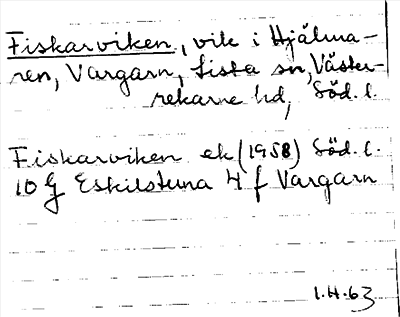 Fiskarviken, vik i Hjälma-
ren, Vargarn, Lista sn, Väster-
rekarne hd, Söd. l.
Fiskarviken ek (1958) Söd. l.
10 G Eskilstuna 4 f Vargarn
1.H.63